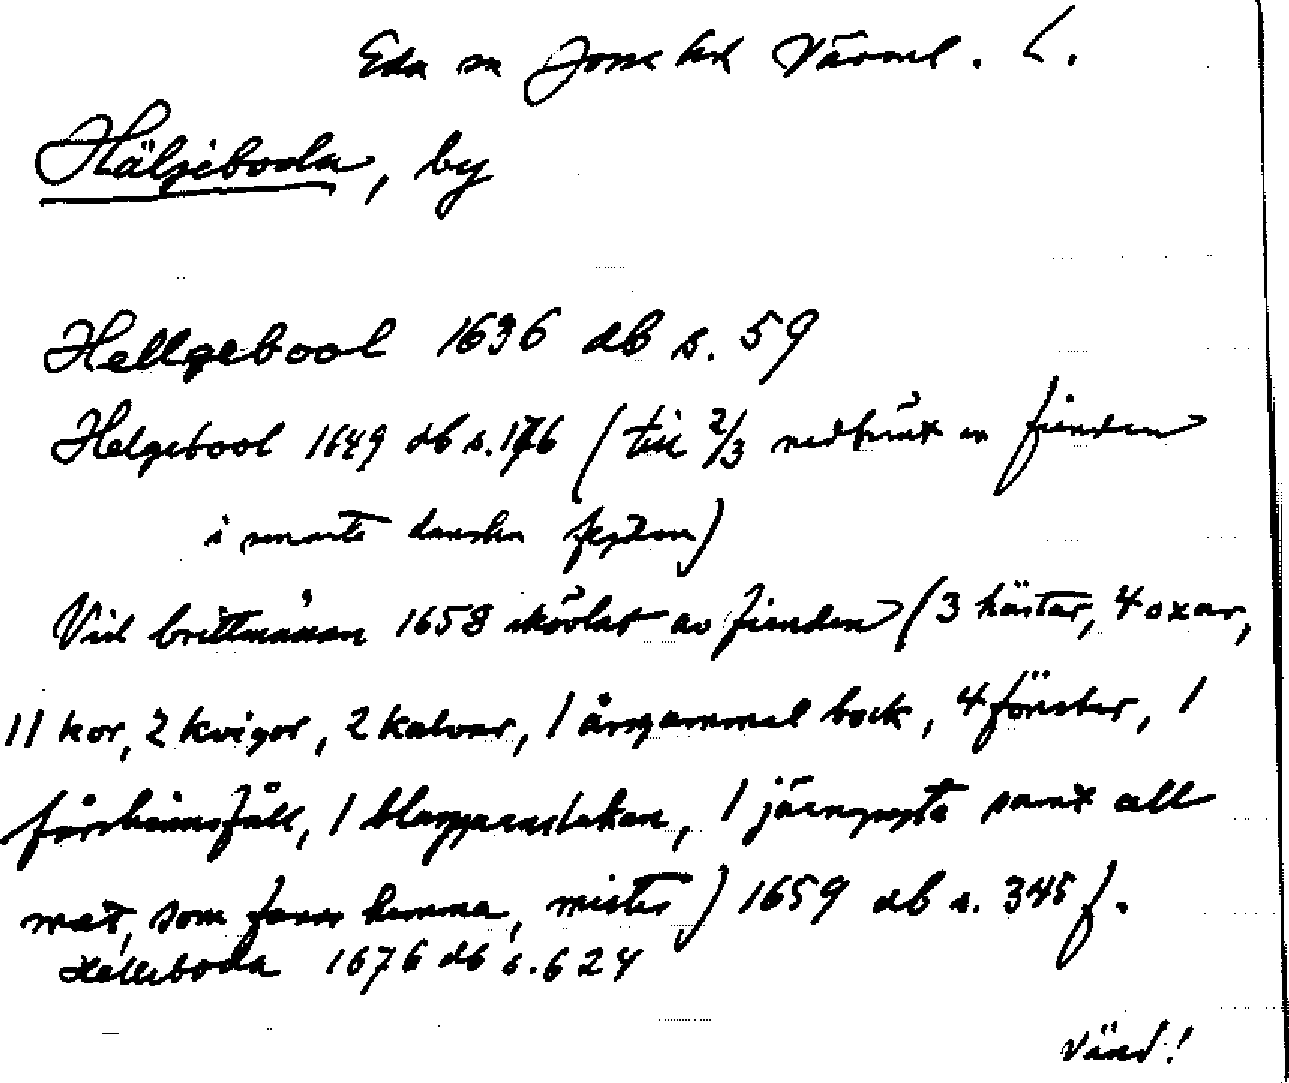 Eda sn Jösse hd Värml. L.
Hälgeboda, by
Hellgebool 1636 db s. 59
Helgebool 1649 db s. 176 (till 2/3 nedbränt av fienden
i senaste danska fejden)
Vid brittmässan 1658 skövlat av fienden (3 hästar, 4 oxar,
11 kor, 2 kvigor, 2 kalvar, 1 årsgammal bock, 4 fönster, 1
fårskinnsfäll, 1 järngryta samt all
mat, som fanns hemma, mistes) 1659 db s. 345 f.
Helleboda 1676 db s. 624
Vänd!